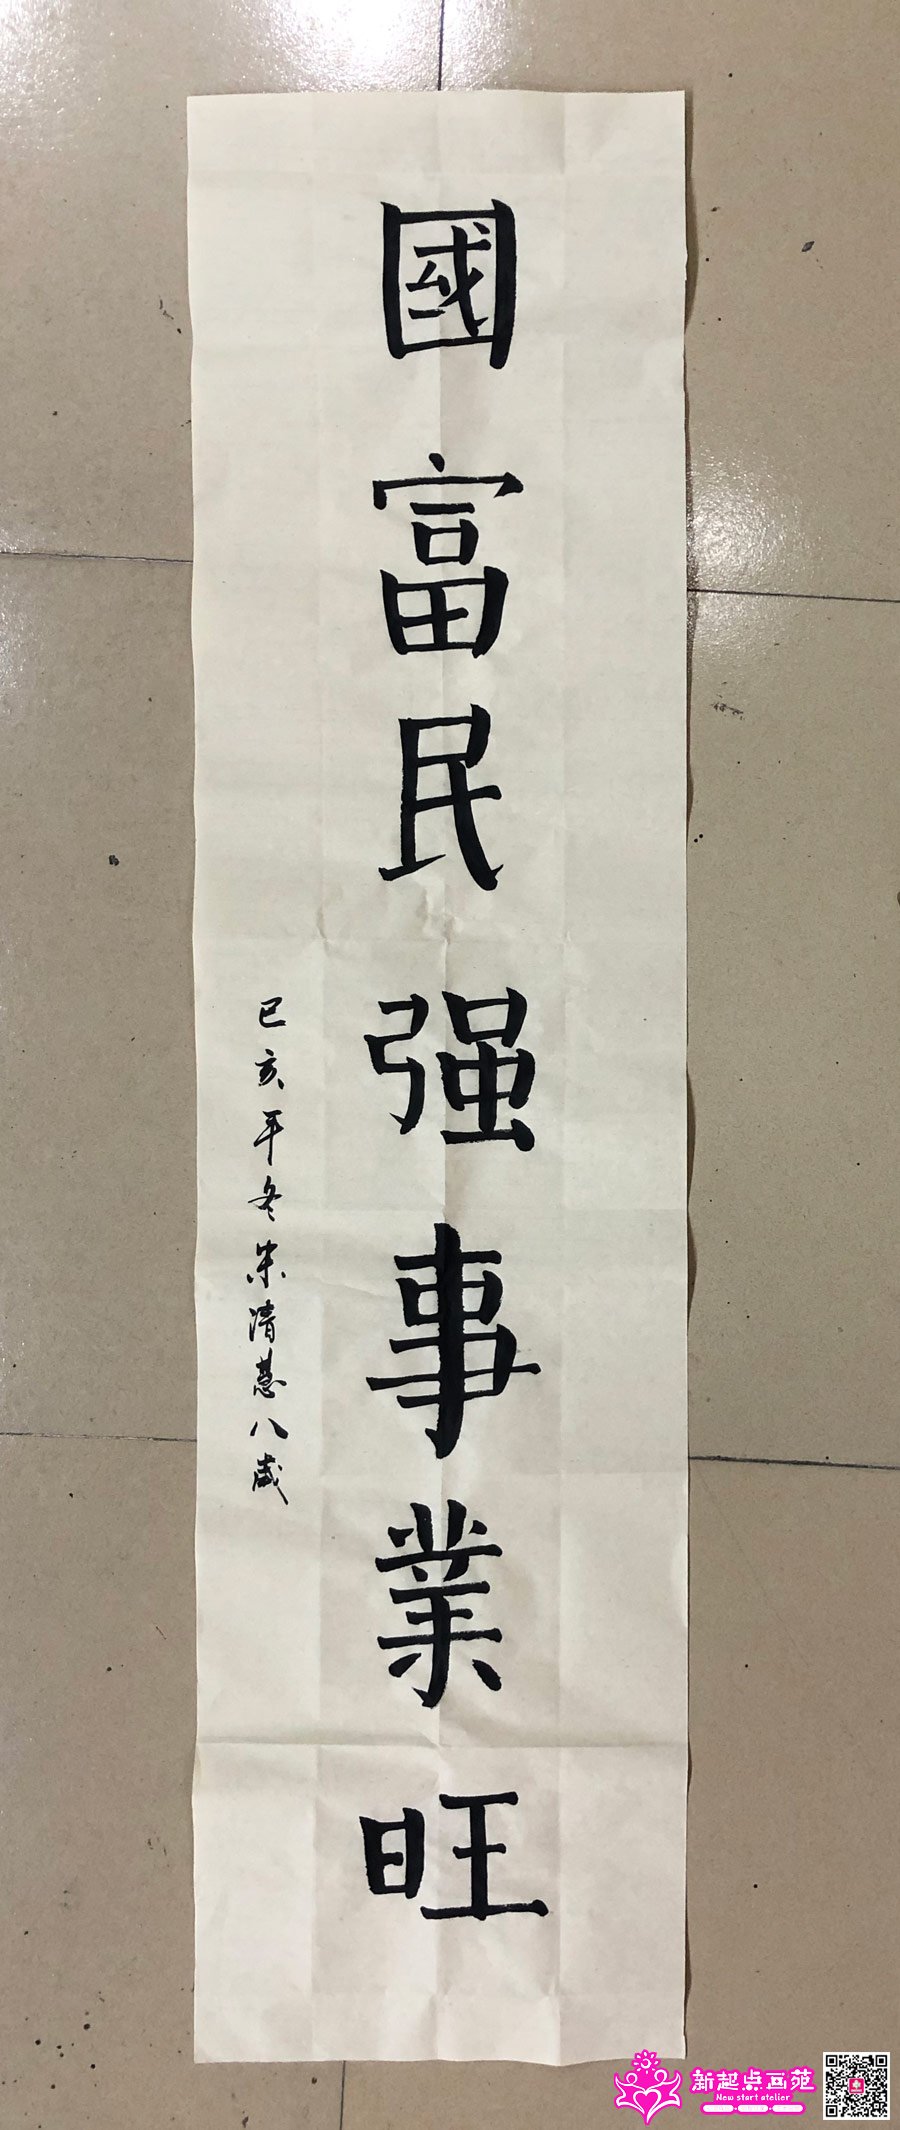 國富民强事業旺
己亥年冬朱清慈八歲
新起点画苑
New start atelier